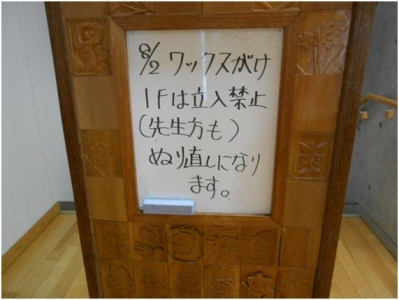 8/2 ワックスがけ
1Fは立入禁止
(先生方も)
ぬり直しになり
ます。